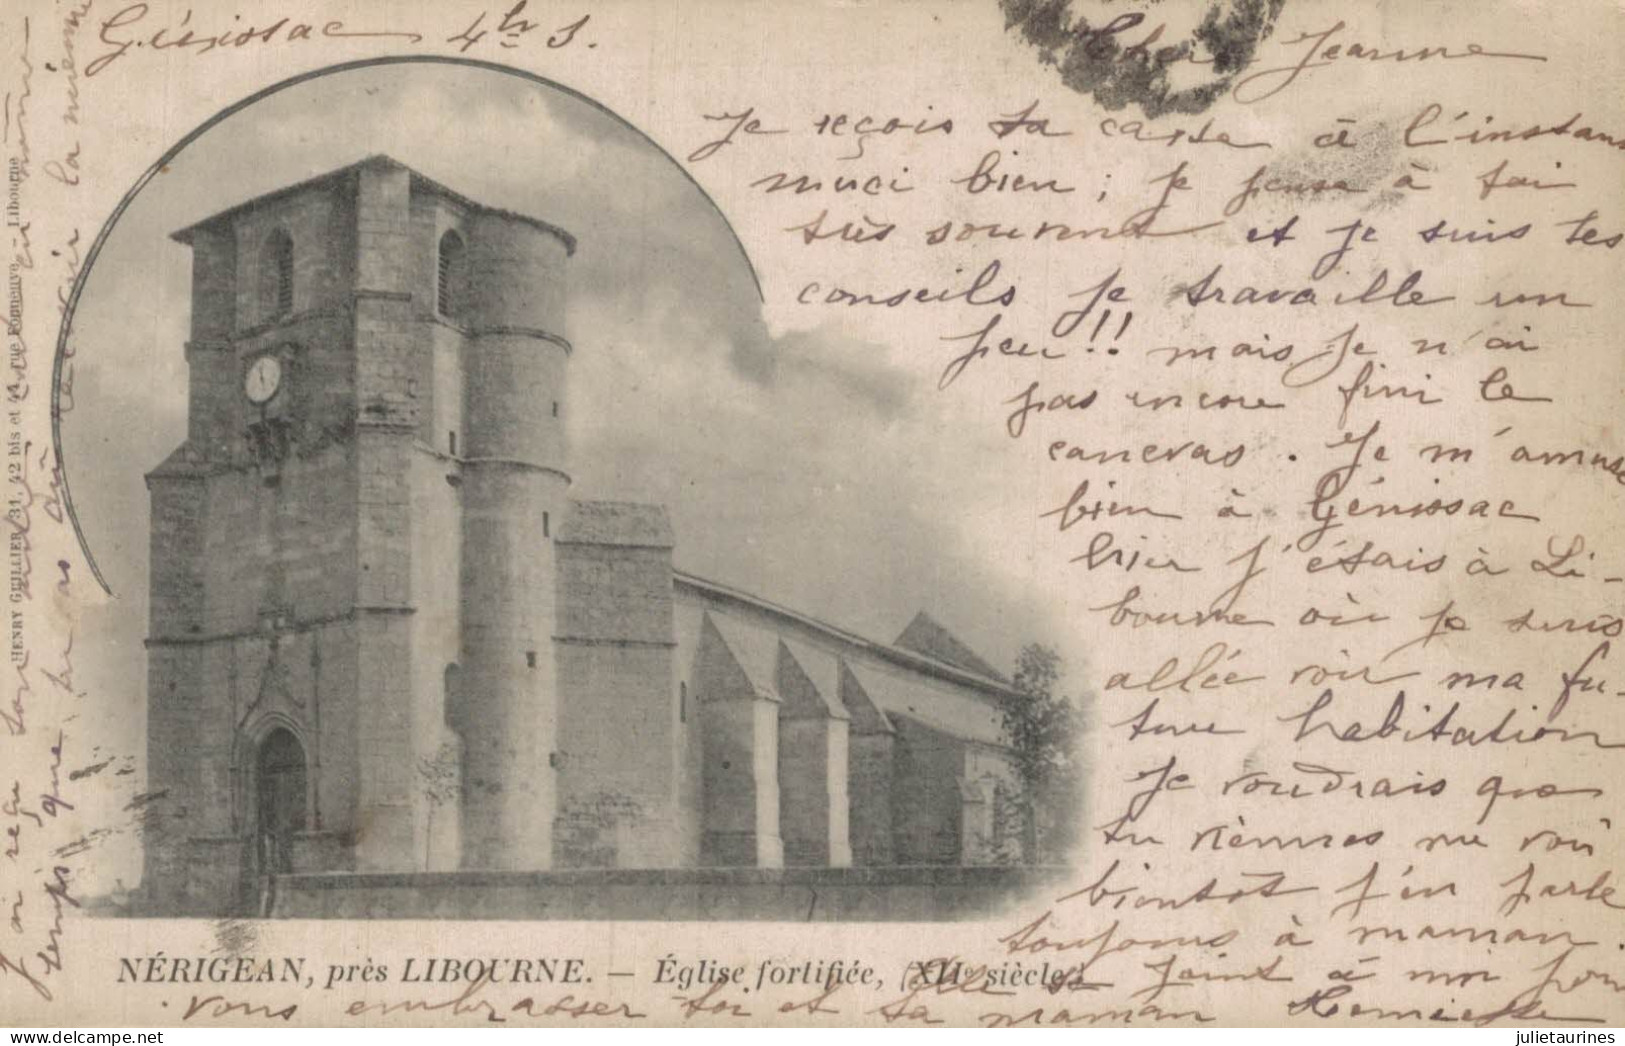 Génissac 4h s.
Chère Jeanne
Je reçois ta carte à l'instant
merci bien ; je pense à toi
très souvent et je suis tes
conseils Je travaille un
peu!! mais je n'ai
pas encore fini le
canevas. Je m'amuse
bien à Génissac
hier j'étais à Li-
bourne où je suis
allée voir ma fu-
ture habitation
Je voudrais que
tu viennes me voir
bientôt j'en parle
toujours à maman.
Elle se joint à moi pour
vous embrasser toi et ta maman Henriette
J'ai reçu ton
temps que tu as dû recevoir la mienne
HENRY GUILLIER, 31, 42 bis et 44, rue Fonneuve - Libourne
NÉRIGEAN, près LIBOURNE. — Église fortifiée, (XIIe siècle)
julietaurines